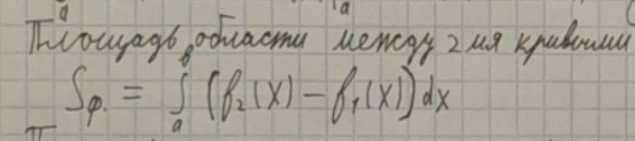 Площадь области между 2 мя кривыми
Sφ. = ∫ₐᵇ (f₂(x) - f₁(x)) dx